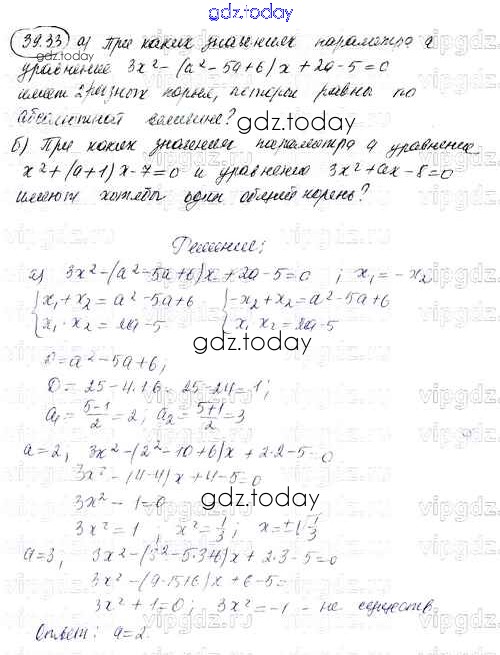 gdz.today
39.33 а) При каких значениях параметра a
уравнение 3x² - (a² - 5a + 6)x + 2a - 5 = 0
имеет 2 разных корня, которые равны по
абсолютной величине?
gdz.today
б) При каких значениях параметра a уравнение
x² + (a + 1)x - 7 = 0 и уравнение 3x² + ax - 8 = 0
имеют хотябы один общий корень?
Решение;
а) 3x² - (a² - 5a + 6)x + 2a - 5 = 0 ; x₁ = -x₂
{x₁ + x₂ = a² - 5a + 6 {-x₂ + x₂ = a² - 5a + 6
{x₁ · x₂ = 2a - 5 {x₁ x₂ = 2a - 5
gdz.today
0 = a² - 5a + 6;
D = 25 - 4·1·6 = 25 - 24 = 1;
a₁ = (5-1)/2 = 2; a₂ = (5+1)/2 = 3
a = 2, 3x² - (2² - 10 + 6)x + 2·2 - 5 = 0
3x² - (4-4)x + 4 - 5 = 0
3x² - 1 = 0
gdz.today
3x² = 1 ; x² = 1/3 ; x = ±√1/3
a = 3, 3x² - (3² - 5·3+6)x + 2·3 - 5 = 0
3x² - (9-15+6)x + 6 - 5 =
3x² + 1 = 0; 3x² = -1 - не существ.
Ответ: a = 2.
gdz.today
vipgdz